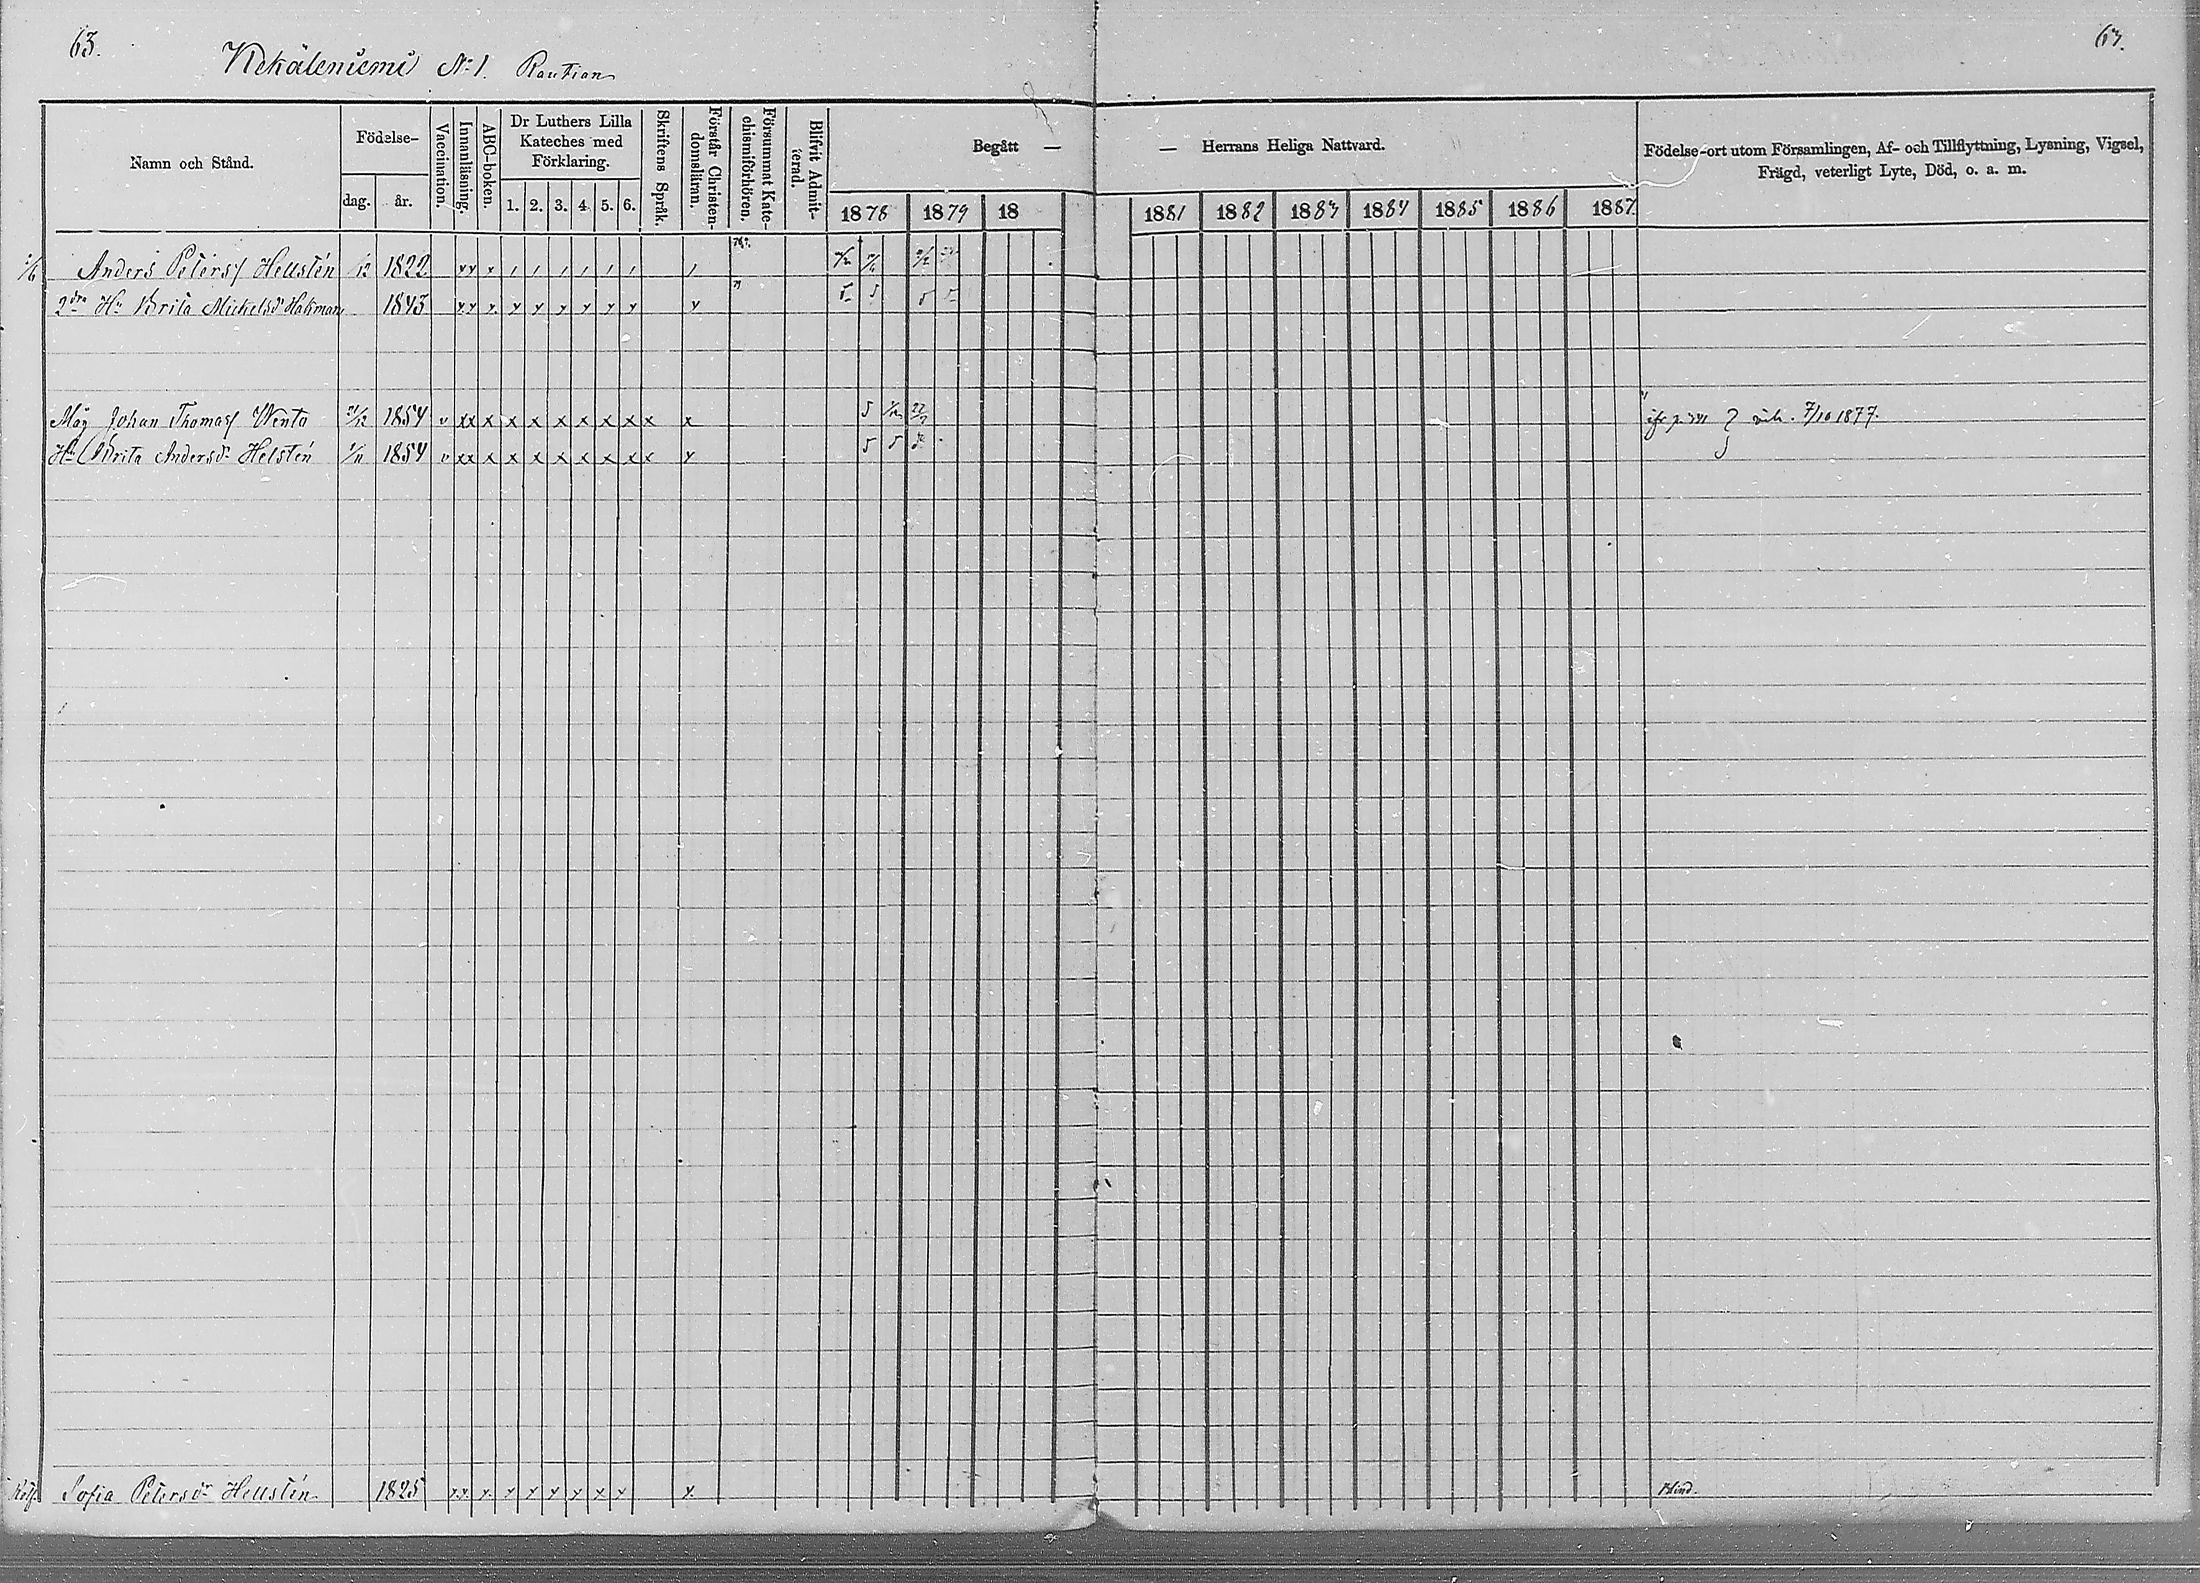 63. 63.
Kekäleniemi No 1. Rautian
Namn och Stånd.
Födelse-
dag. år.
Vaccination.
Innanläsning.
ABC-boken.
Dr Luthers Lilla
Kateches med
Förklaring.
1. 2. 3. 4. 5. 6.
Skriftens Språk.
Förstår Christen-
domsläran.
Försummat Kate-
chismiförhören.
Blifvit Admit-
terad.
Begått — — Herrans Heliga Nattvard.
1878 1879 18 1881 1882 1883 1884 1885 1886 1887
Födelse-ort utom Församlingen, Af- och Tillflyttning, Lysning, Vigsel,
Frägd, veterligt Lyte, Död, o. a. m.
Anders Peters Hellstén /12 1822
2dra Hu Brita Mickelsdr Hakman 1843 5 5 5 5
Måg Johan Thomas Wento 21/12 1854 v xx x x x x x x x x x 5 7/10 1877.
Hu Brita Andersdr Helstén 1/11 1854 v xx x x x x x x x x 5 5
Sofia Petersdr Hellstén 1825 Blind.